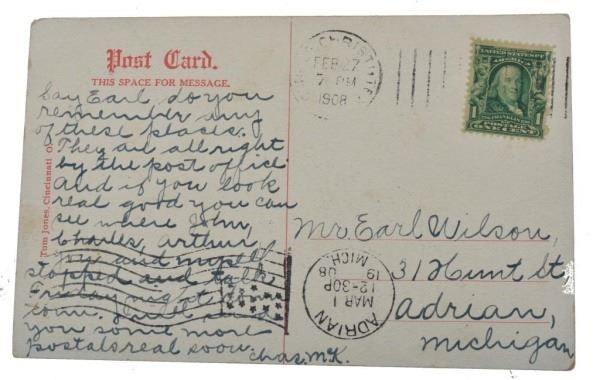 Post Card.
THIS SPACE FOR MESSAGE.
Say Earl do you
remember any
of these places.
They are all right
by the post office
And if you look
real good you can
see where John,
Charles, Arthur
you and myself
stopped and talk
Friday night
will
you some more
postals real soon.
Chas. McK.
Tom Jones, Cincinnati O.
CHRISTI
FEB 27
7 PM
1908
UNITED STATES
1 1
FRANKLIN
POSTAGE
ONE CENT
Mr Earl Wilson,
31 Hunt St
Adrian,
Michigan
ADRIAN
MAR 1
12-30P
19 08
MICH.